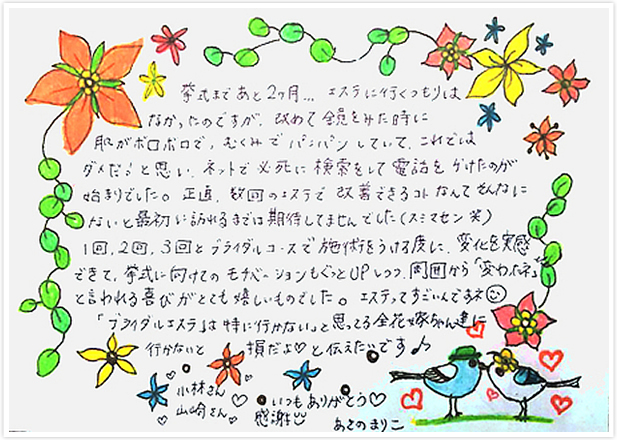 挙式まであと2ヶ月... エステに行くつもりは
なかったのですが、改めて鏡をみた時に
肌がボロボロで、むくみでパンパンしていて、これでは
ダメだ!と思い、ネットで必死に検索をして電話をかけたのが
始まりでした。正直、数回のエステで改善できるコトなんてそんなに
ないと最初に訪れるまでは期待してませんでした(スミマセン笑)
1回、2回、3回とブライダルコースで施術をうける度に、変化を実感
できて、挙式に向けてのモチベーションもぐっとUPしつつ、周囲から「変わったネ」
と言われる喜びがとても嬉しいものでした。エステってすごいんですネ
「ブライダルエステ」は特に行かない。と思ってる全花嫁ちゃん達に
行かないと 損だよ♡と伝えたいです♪
小林さん♡
山崎さん♡
いつもありがとう♡
感謝
あさの まりこ